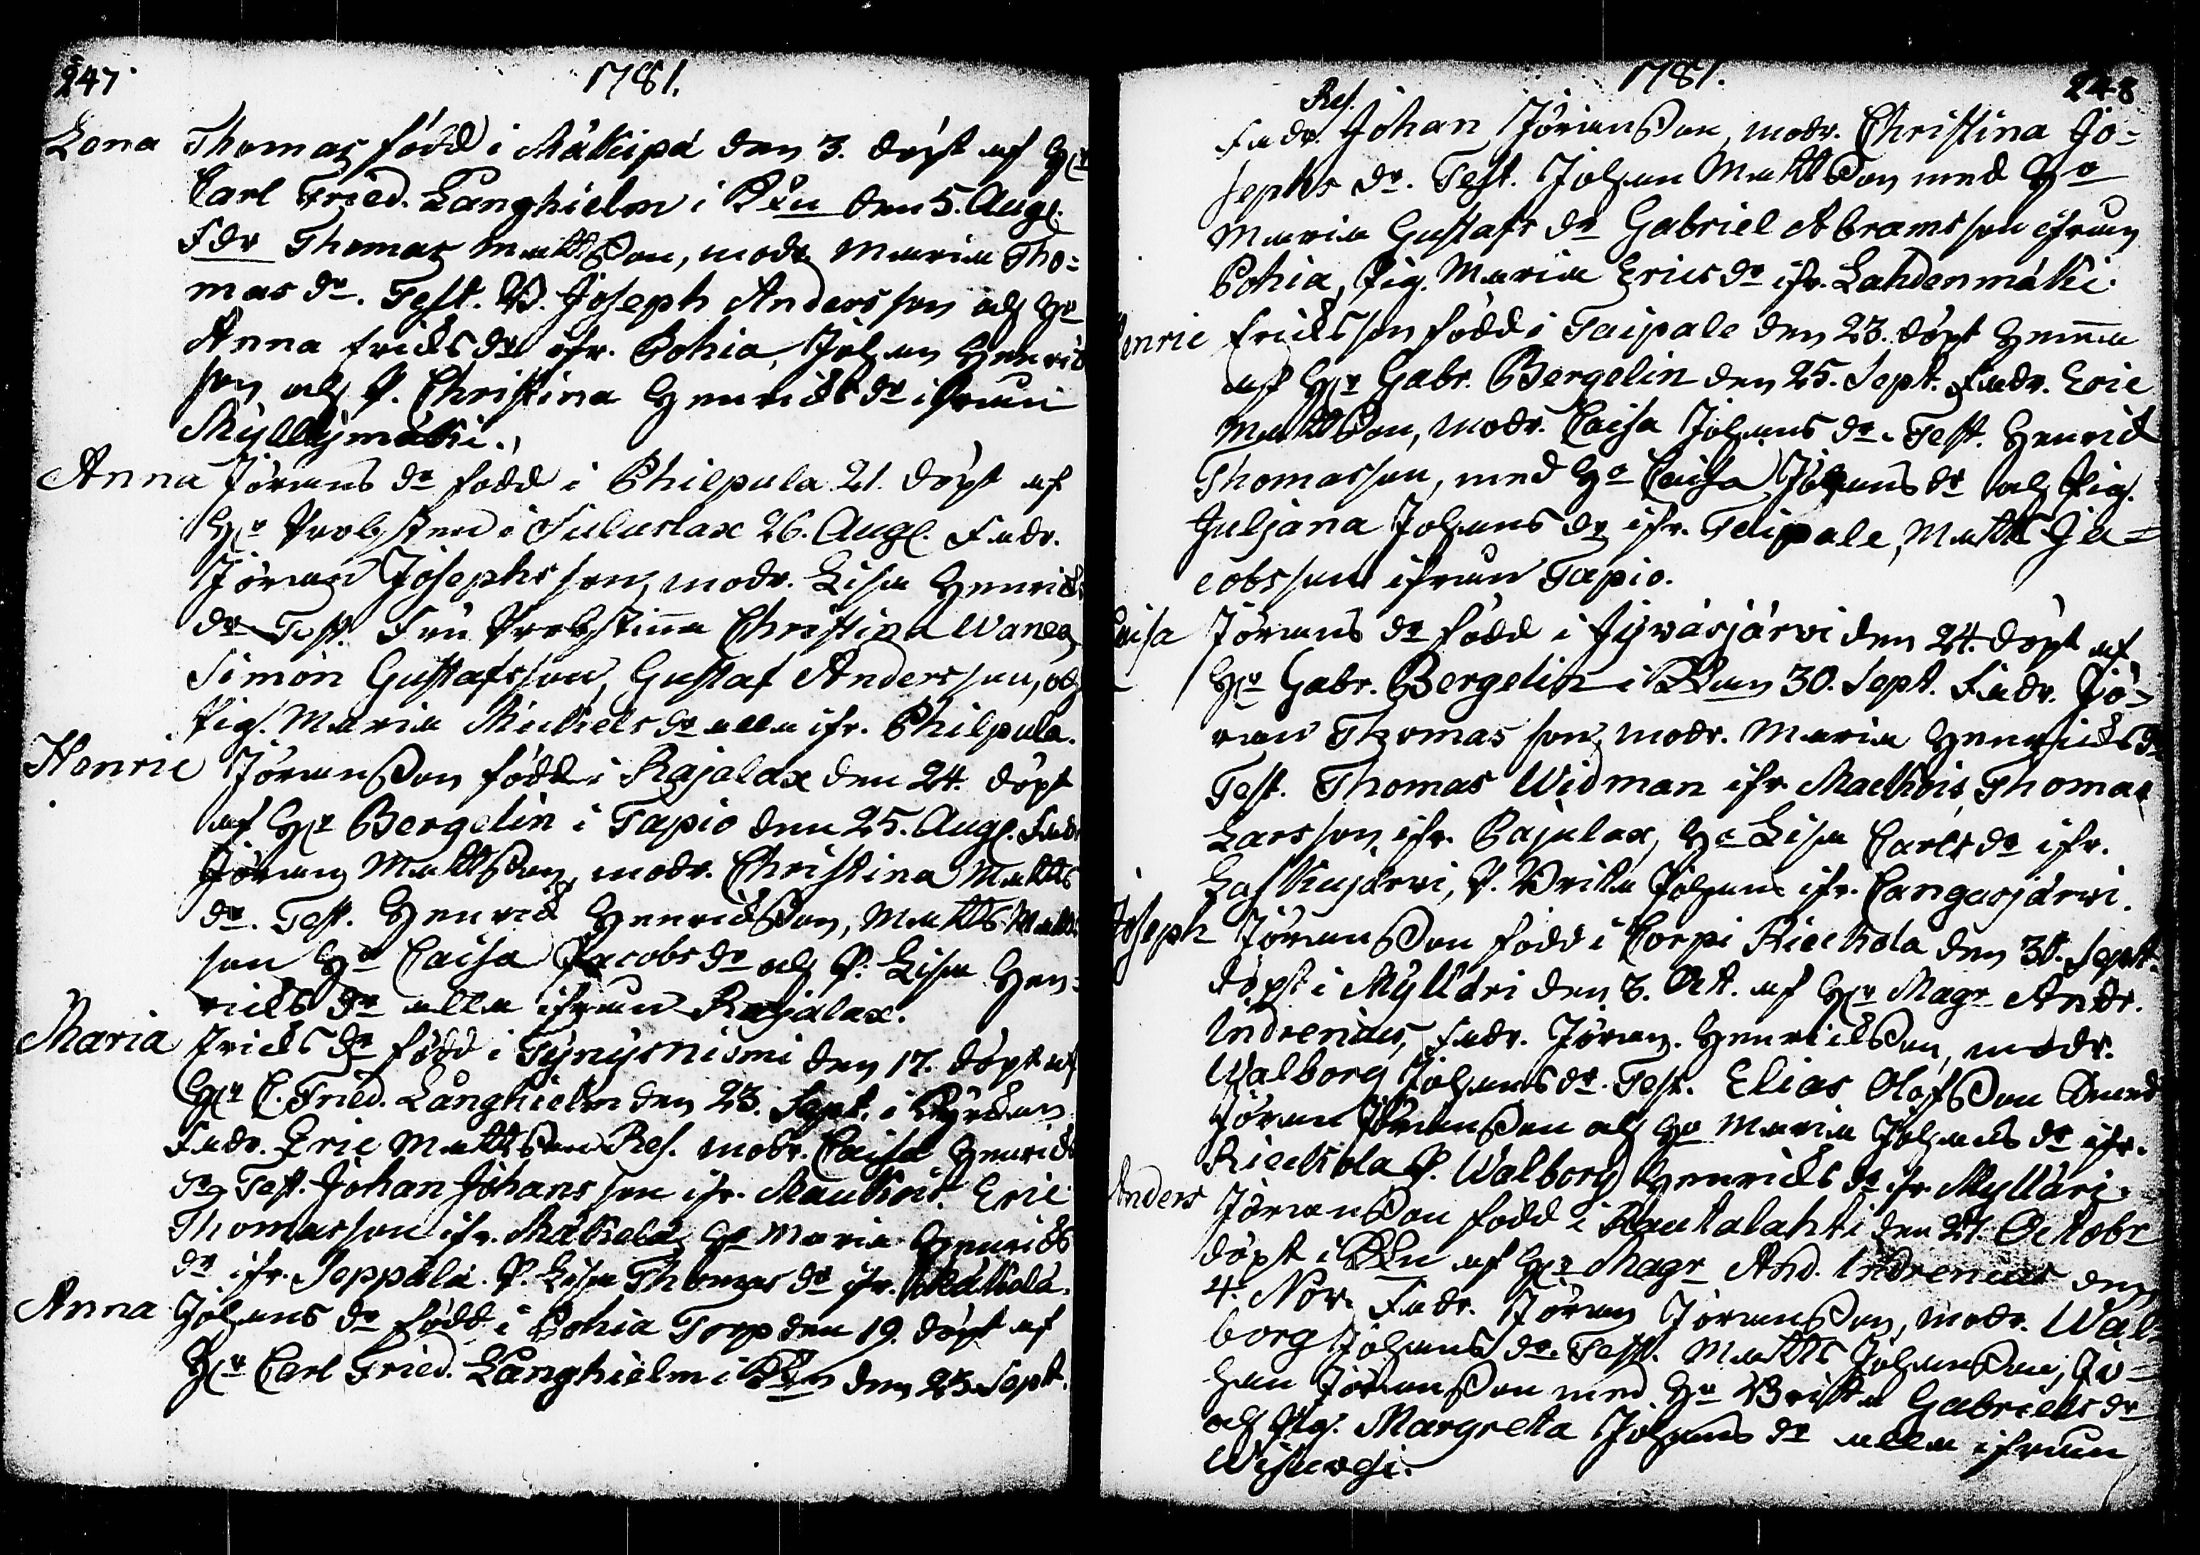 247
1781.
Lena Thomas född i Mäkipä den 3. döpt af Hr
Carl Fried. Långhielm i Kku den 5. Aug.
Fdr Thomas Mattsson, modr. Maria Tho=
mas dr. Test. B. Joseph Andersson och Ho
Anna Ericks dr ifr. Pohia, Johan Henric
son och P. Christina Henricks dr ifrån
Myllymäki.
Anna Jörans dr född i Philpula 21. döpt af
Hr Probsten i Suluslax 26. Aug. Fadr.
Jöran Josephsson, modr. Lisa Henricks
dr Test. Fru Probstinna Christina Wanæa
Simon Gustafsson, Gustaf Andersson, och
Pig. Maria Mickels dr alla ifr. Philpula.
Henric Jöransson född i Rajalax den 24. döpt
af Hr Bergelin i Tapio den 25. Aug. Fadr
Jöran Mattsson, modr. Christina Matts
dr. Test. Henric Henricsson, Matts Matts
son Ho Caisa Jacobs dr och P. Lisa Hen=
ricks dr alla ifrån Rajalax.
Maria Ericks dr född i Tynysniemi den 17. döpt af
Hr C. Fried. Långhielm den 23. Sept. i Kyrkan
Fadr. Eric Mattsson Res. modr. Caisa Henrics
dr Test. Johan Johansson ifr. Maukois Eric
Thomasson ifr. Mäkelä, Ho Maria Henricks
dr ifr. Seppälä. P. Lisa Thomas dr ifr. Mäkelä.
Anna Johans dr född i Pohia Torp den 19. döpt af
Hr Carl Fried. Långhielm i Kku den 23. Sept.
1781.
248
Res.
Fadr. Johan Jöransson, modr. Christina Jo=
sephs dr. Test. Johan Mattsson med Ho
Maria Gustafs dr Gabriel Abramsson ifrån
Pohia, Pig. Maria Erics dr ifr. Lahdenmäki.
Henric Ericksson född i Taipale den 23. döpt hemma
af Hr Gabr. Bergelin den 25. Sept. Fadr. Eric
Mattsson, modr. Caisa Johans dr. Test. Henric
Thomasson, med Ho Caisa Johans dr och Pig.
Juljana Johans dr ifr. Taipale, Matts Ja=
cobsson ifrån Tapio.
Caisa Jörans dr född i Jywäsjärvi den 24. döpt af
Hr Gabr. Bergelin i Kkan 30. Sept. Fadr. Jö=
ran Thomasson, modr. Maria Henricks dr
Test. Thomas Widman ifr Maukois, Thomas
Larsson, ifr. Rajalax, Ho Lisa Carls dr ifr.
Laskujärwi, P. Brita Johans ifr. Cangasjärwi.
Joseph Jöransson född i Corpi Rieckola den 30. Sept.
döpt i Mylläri den 3. Oct. af Hr Magr Andr.
Indrenius, Fadr. Jöran Henricsson, modr.
Walborg Johans dr. Test. Elias Olofsson
Jöran Jöransson och Ho Maria Johans dr ifr.
Rieckola P. Walborg Henricks dr ifr Mylläri.
Anders Jöransson född i Rautalahti den 27. Octobr
döpt i Kku af Hr Magr And. Indrenius den
4. Nov. Fadr. Jöran Jöransson, modr. Wal=
borg Johans dr. Test. Matts Johansson, Jo=
han Jöransson med Ho Britta Gabriels dr
och Pig. Margreta Johans dr alla ifrån